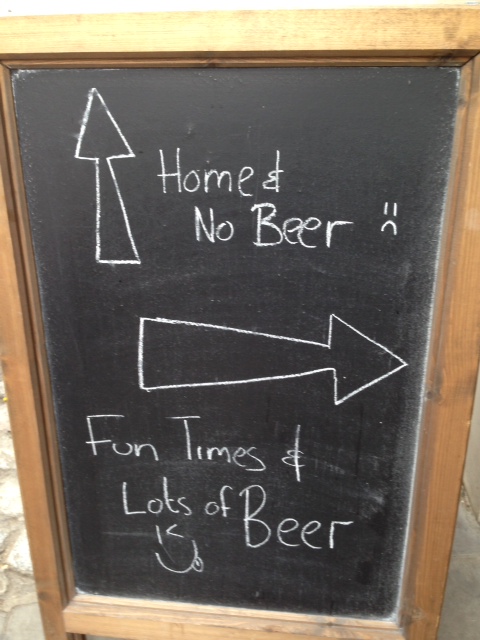 Home &
No Beer
Fun Times &
Lots of Beer